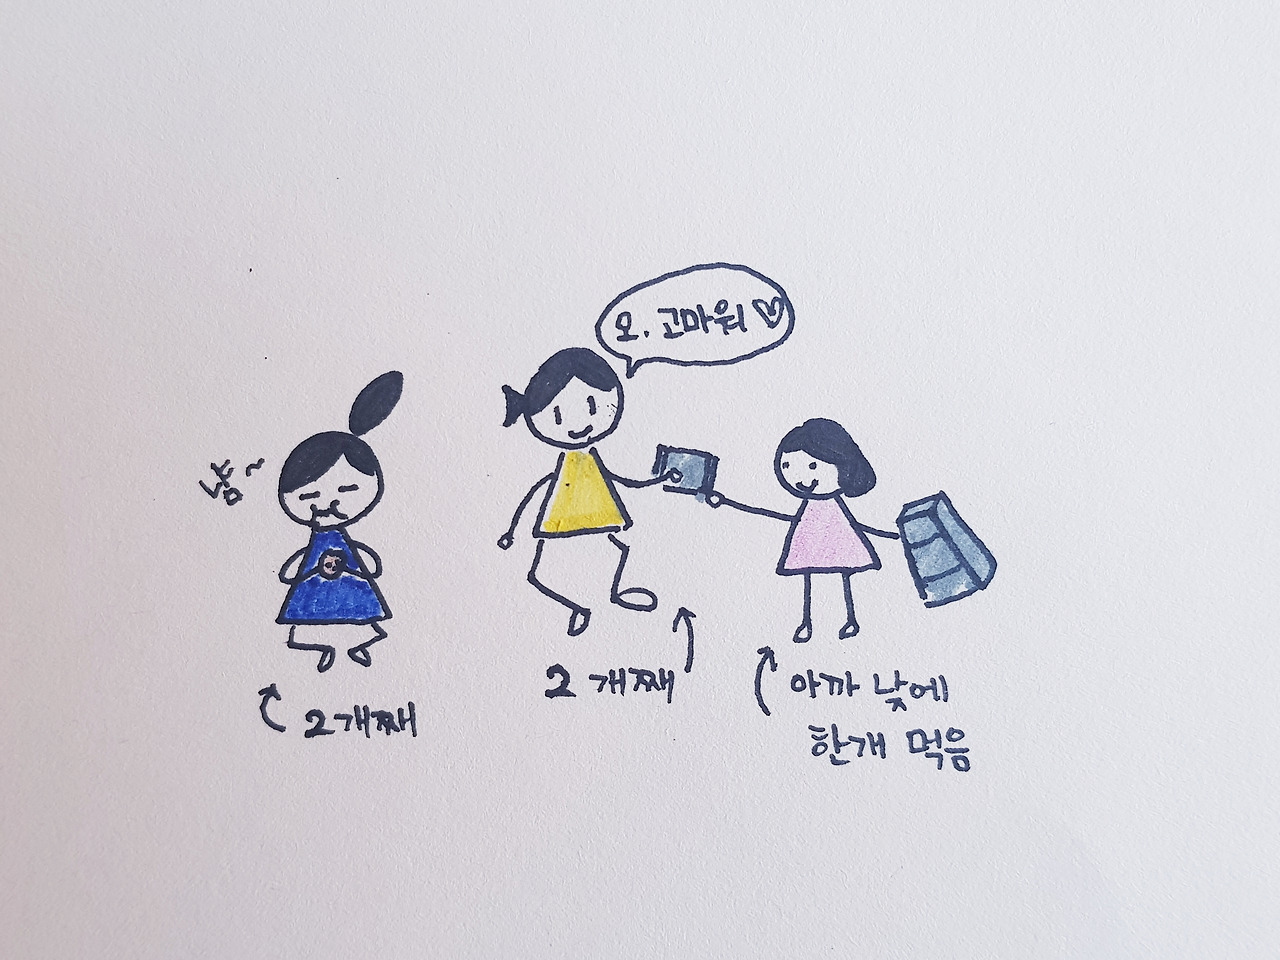 오. 고마워♡
냠~
2개째
2 개째
아까 낮에
한개 먹음